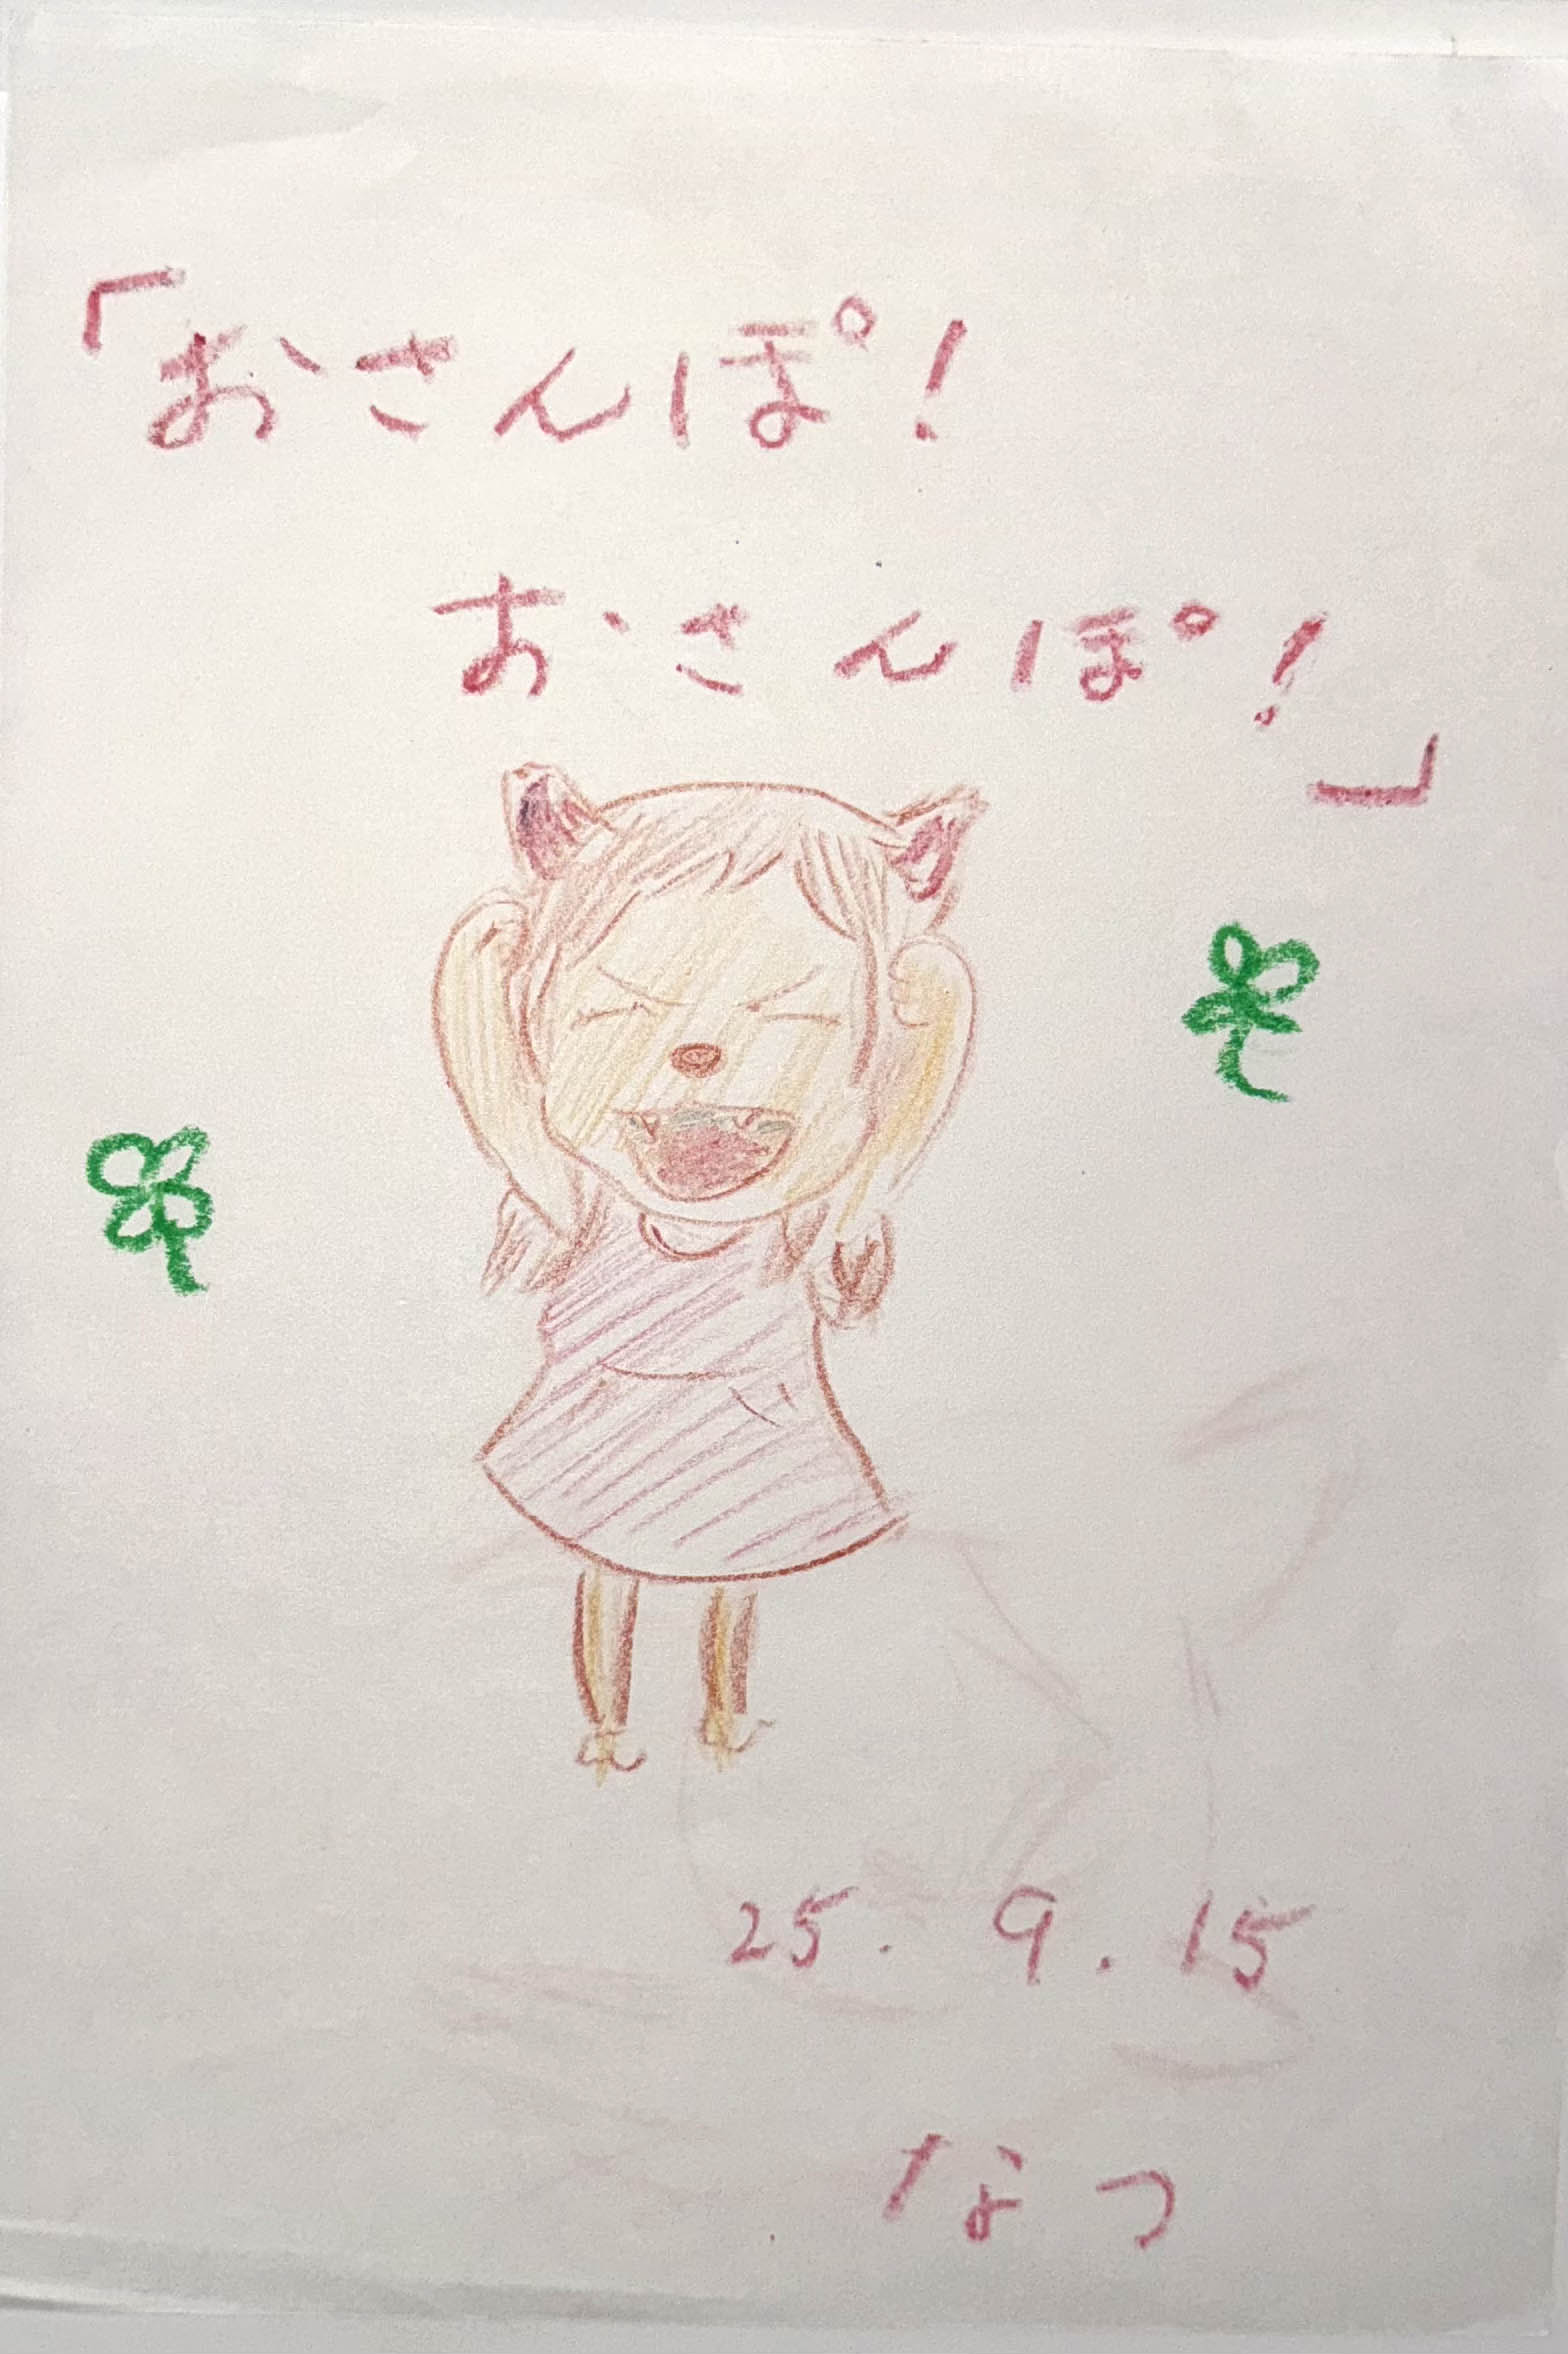 「おさんぽ!
おさんぽ!」
25.9.15
なつ